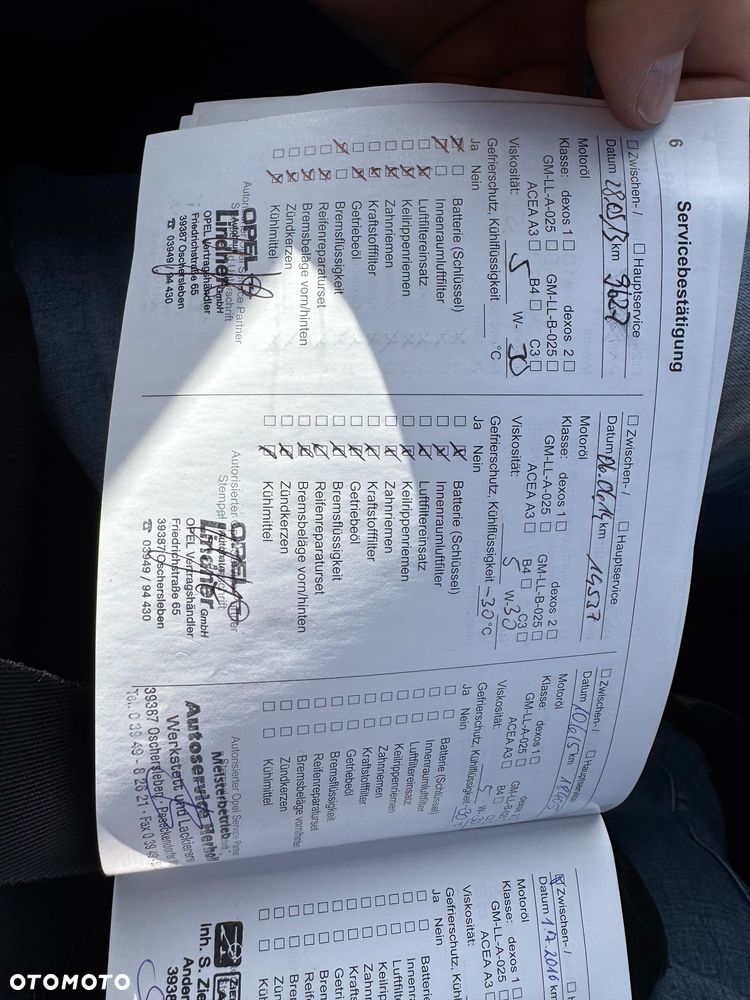 6
Servicebestätigung
□ Zwischen- / □ Hauptservice
Datum 28.05.13 km 9627
Motoröl
Klasse: dexos 1 □ dexos 2 □
GM-LL-A-025 □ GM-LL-B-025 □
ACEA A3 □ B4 □ C3 □
Viskosität: 5 W- 30
Gefrierschutz, Kühlflüssigkeit °C
Ja Nein
Batterie (Schlüssel)
Innenraumluftfilter
Luftfiltereinsatz
Keilrippenriemen
Zahnriemen
Kraftstofffilter
Getriebeöl
Bremsflüssigkeit
Reifenreparaturset
Bremsbeläge vorn/hinten
Zündkerzen
Kühlmittel
OPEL
Lindner GmbH
OPEL Vertragshändler
Friedrichstraße 65
39387 Oschersleben
☎ 03949 / 94 430
□ Zwischen- / □ Hauptservice
Datum 06.04.14 km 14537
Motoröl
Klasse: dexos 1 □ dexos 2 □
GM-LL-A-025 □ GM-LL-B-025 □
ACEA A3 □ B4 □ C3 □
Viskosität: 5 W-30
Gefrierschutz, Kühlflüssigkeit -30 °C
Ja Nein
Batterie (Schlüssel)
Innenraumluftfilter
Luftfiltereinsatz
Keilrippenriemen
Zahnriemen
Kraftstofffilter
Getriebeöl
Bremsflüssigkeit
Reifenreparaturset
Bremsbeläge vorn/hinten
Zündkerzen
Kühlmittel
Autorisierter
Stempel
OPEL
Lindner GmbH
OPEL Vertragshändler
Friedrichstraße 65
39387 Oschersleben
☎ 03949 / 94 430
□ Zwischen- / □ Hauptservice
Datum km
Motoröl
Klasse: dexos 1 □
GM-LL-A-025 □ GM-LL-B-025
ACEA A3 □ B4 □
Viskosität: 5 W-
Gefrierschutz, Kühlflüssigkeit
Ja Nein
Batterie (Schlüssel)
Innenraumluftfilter
Luftfiltereinsatz
Keilrippenriemen
Zahnriemen
Kraftstofffilter
Getriebeöl
Bremsflüssigkeit
Reifenreparaturset
Bremsbeläge vorn/hinten
Zündkerzen
Kühlmittel
Autorisierter Opel Service Partner
Meisterbetrieb
Autoservice
Werkstatt und Lackierere
39387 Oschersleben
Tel. 0 39 49 - 8 26 21 · Fax 0 39 49
☒ Zwischen- /
Datum 1.7.2016 km
Motoröl
Klasse: dexos 1 □
GM-LL-A-025 □
ACEA A3
Viskosität:
Gefrierschutz, Kühl
Ja Nein
Batterie
Innenr
Luftfilte
Keilripp
Zahnr
Kraft
Getri
Brem
Reif
Bre
Zün
Küh
Inh. S. Zie
Ander
3938
OTOMOTO